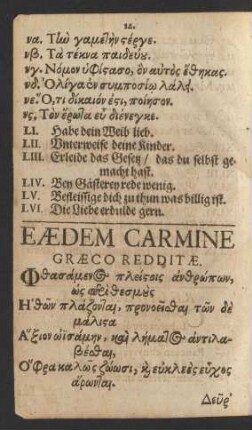 να. Τὴν γαμετὴν στέργε.
νβ. Τὰ τέκνα παιδεύου.
νγ. Νόμον ὑφίστασο, ὃν αὐτὸς ἔθηκας.
νδ. Ὀλίγα ὂν συμποσίῳ λάλει.
νε. Ὅ,τι δίκαιόν ἐστι, ποίησον.
νς, Τὸν ἔρωτα εὖ διένεγκε.
LI. Habe dein Weib lieb.
LII. Unterweise deine Kinder.
LIII. Erleide das Gesetz / das du selbst ge-
macht hast.
LIV. Bey Gästerey rede wenig.
LV. Befleissige dich zu thun was billig ist.
LVI. Die Liebe erdulde gern.
EÆDEM CARMINE
GRÆCO REDDITÆ.
Φθασάμενος πλείστοις ἀνθρώπων,
ὡς
Ἠθῶν πλάζονται, προνοεῖσθαι τῶν δὲ
μάλιστα
Ἄξιον ὠϊσάμην, καὶ λήματος ἀντιλα-
βέσθαι,
Ὄφρα καλῶς ζώωσι, καὶ εὐκλεὲς εὖχος
ἄρωνται.
Δεῦρ'